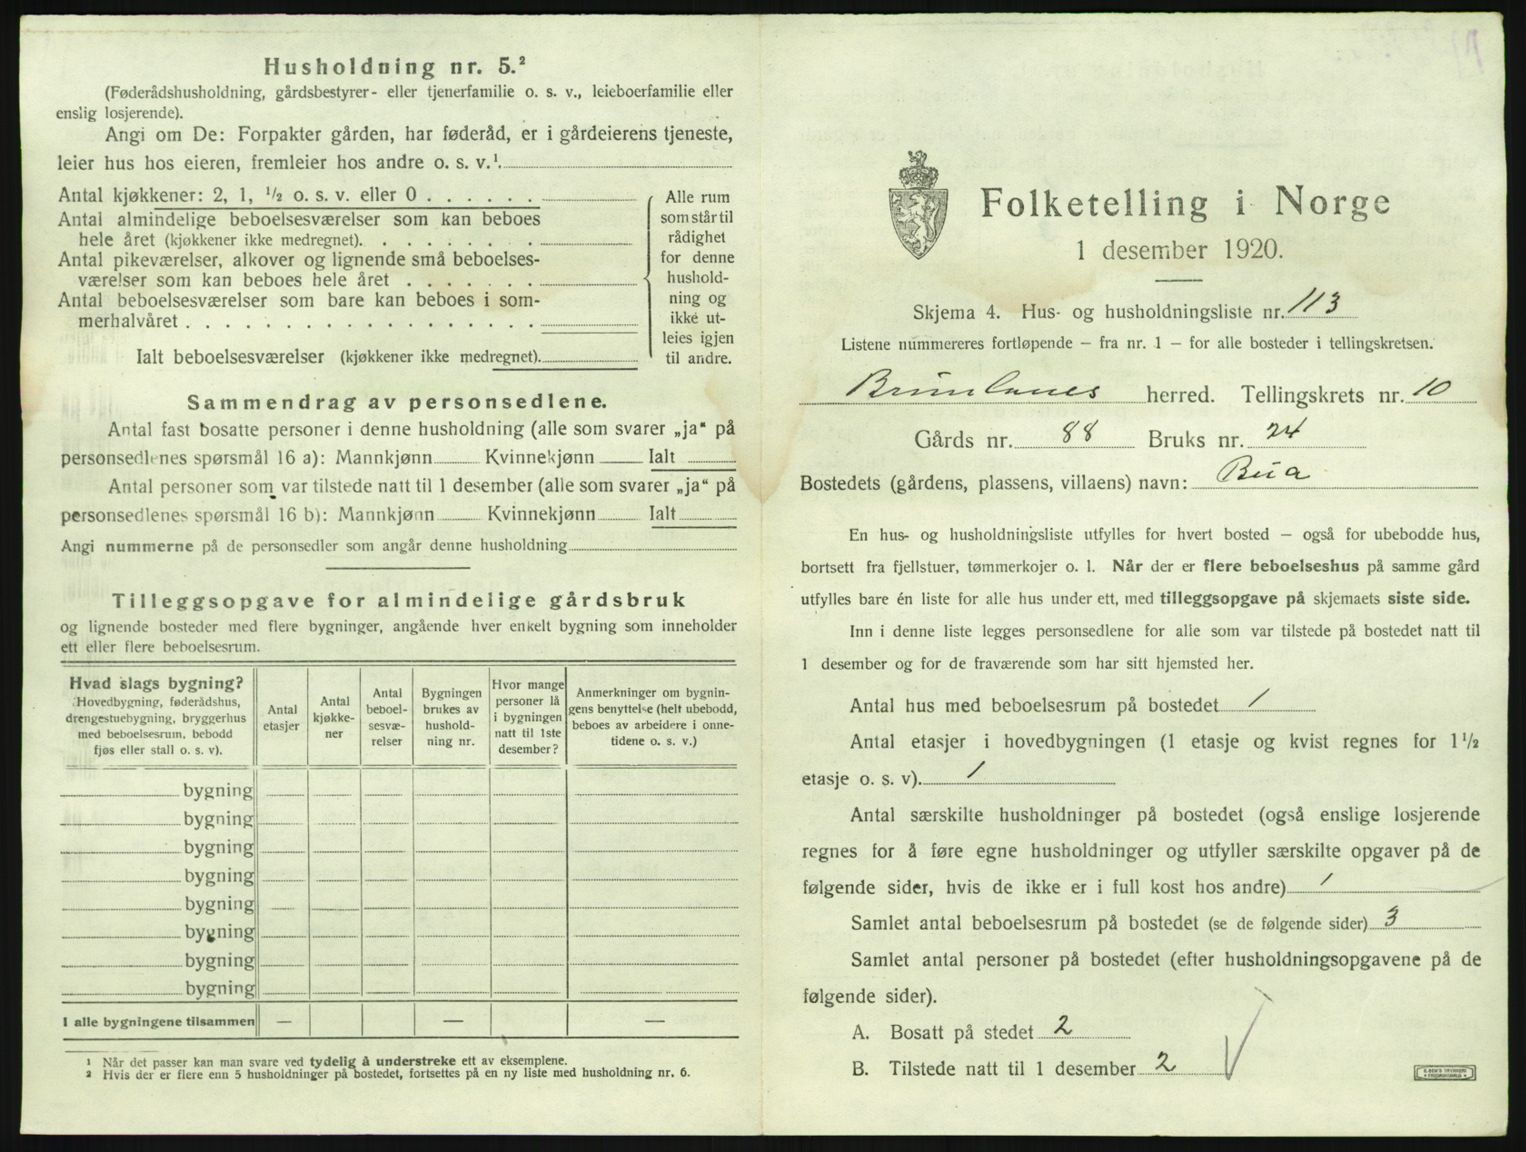 Husholdning nr. 5.²
(Føderådshusholdning, gårdsbestyrer- eller tjenerfamilie o. s. v., leieboerfamilie eller
enslig losjerende).
Angi om De: Forpakter gården, har føderåd, er i gårdeierens tjeneste,
leier hus hos eieren, fremleier hos andre o. s. v.¹
Antal kjøkkener: 2, 1, ½ o. s. v. eller 0 . . . . . .
Antal almindelige beboelsesværelser som kan beboes
hele året (kjøkkener ikke medregnet). . . . . . . . .
Antal pikeværelser, alkover og lignende små beboelses-
værelser som kan beboes hele året . . . . . . .
Antal beboelsesværelser som bare kan beboes i som-
merhalvåret . . . . . . . . . . . . . . . . .
Ialt beboelsesværelser (kjøkkener ikke medregnet).
Alle rum
som står til
rådighet
for denne
hushold-
ning og
ikke ut-
leies igjen
til andre.
Sammendrag av personsedlene.
Antal fast bosatte personer i denne husholdning (alle som svarer „ja" på
personsedlenes spørsmål 16 a): Mannkjønn Kvinnekjønn Ialt
Antal personer som var tilstede natt til 1 desember (alle som svarer „ja" på
personsedlenes spørsmål 16 b): Mannkjønn Kvinnekjønn Ialt
Angi nummerne på de personsedler som angår denne husholdning
Tilleggsopgave for almindelige gårdsbruk
og lignende bosteder med flere bygninger, angående hver enkelt bygning som inneholder
ett eller flere beboelsesrum.
Hvad slags bygning?
(Hovedbygning, føderådshus,
drengestuebygning, bryggerhus
med beboelsesrum, bebodd
fjøs eller stall o. s. v).
Antal
etasjer
Antal
kjøkke-
ner
Antal
beboel-
sesvæ-
relser
Bygningen
brukes av
hushold-
ning nr.
Hvor mange
personer lå
i bygningen
natt til 1ste
desember?
Anmerkninger om bygnin-
gens benyttelse (helt ubebodd,
beboes av arbeidere i onne-
tidene o. s. v.)
bygning
bygning
bygning
bygning
bygning
bygning
bygning
bygning
I alle bygningene tilsammen — — —
¹ Når det passer kan man svare ved tydelig å understreke ett av eksemplene.
² Hvis der er flere enn 5 husholdninger på bostedet, fortsettes på en ny liste med husholdning nr. 6.
Folketelling i Norge
1 desember 1920.
Skjema 4. Hus- og husholdningsliste nr. 113
Listene nummereres fortløpende – fra nr. 1 – for alle bosteder i tellingskretsen.
Brunlanes herred. Tellingskrets nr. 10
Gårds nr. 88 Bruks nr. 24
Bostedets (gårdens, plassens, villaens) navn: Bua
En hus- og husholdningsliste utfylles for hvert bosted – også for ubebodde hus,
bortsett fra fjellstuer, tømmerkojer o. l. Når der er flere beboelseshus på samme gård
utfylles bare én liste for alle hus under ett, med tilleggsopgave på skjemaets siste side.
Inn i denne liste legges personsedlene for alle som var tilstede på bostedet natt til
1 desember og for de fraværende som har sitt hjemsted her.
Antal hus med beboelsesrum på bostedet 1
Antal etasjer i hovedbygningen (1 etasje og kvist regnes for 1½
etasje o. s. v). 1
Antal særskilte husholdninger på bostedet (også enslige losjerende
regnes for å føre egne husholdninger og utfyller særskilte opgaver på de
følgende sider, hvis de ikke er i full kost hos andre) 1
Samlet antal beboelsesrum på bostedet (se de følgende sider) 3
Samlet antal personer på bostedet (efter husholdningsopgavene på de
følgende sider).
A. Bosatt på stedet 2
B. Tilstede natt til 1 desember 2